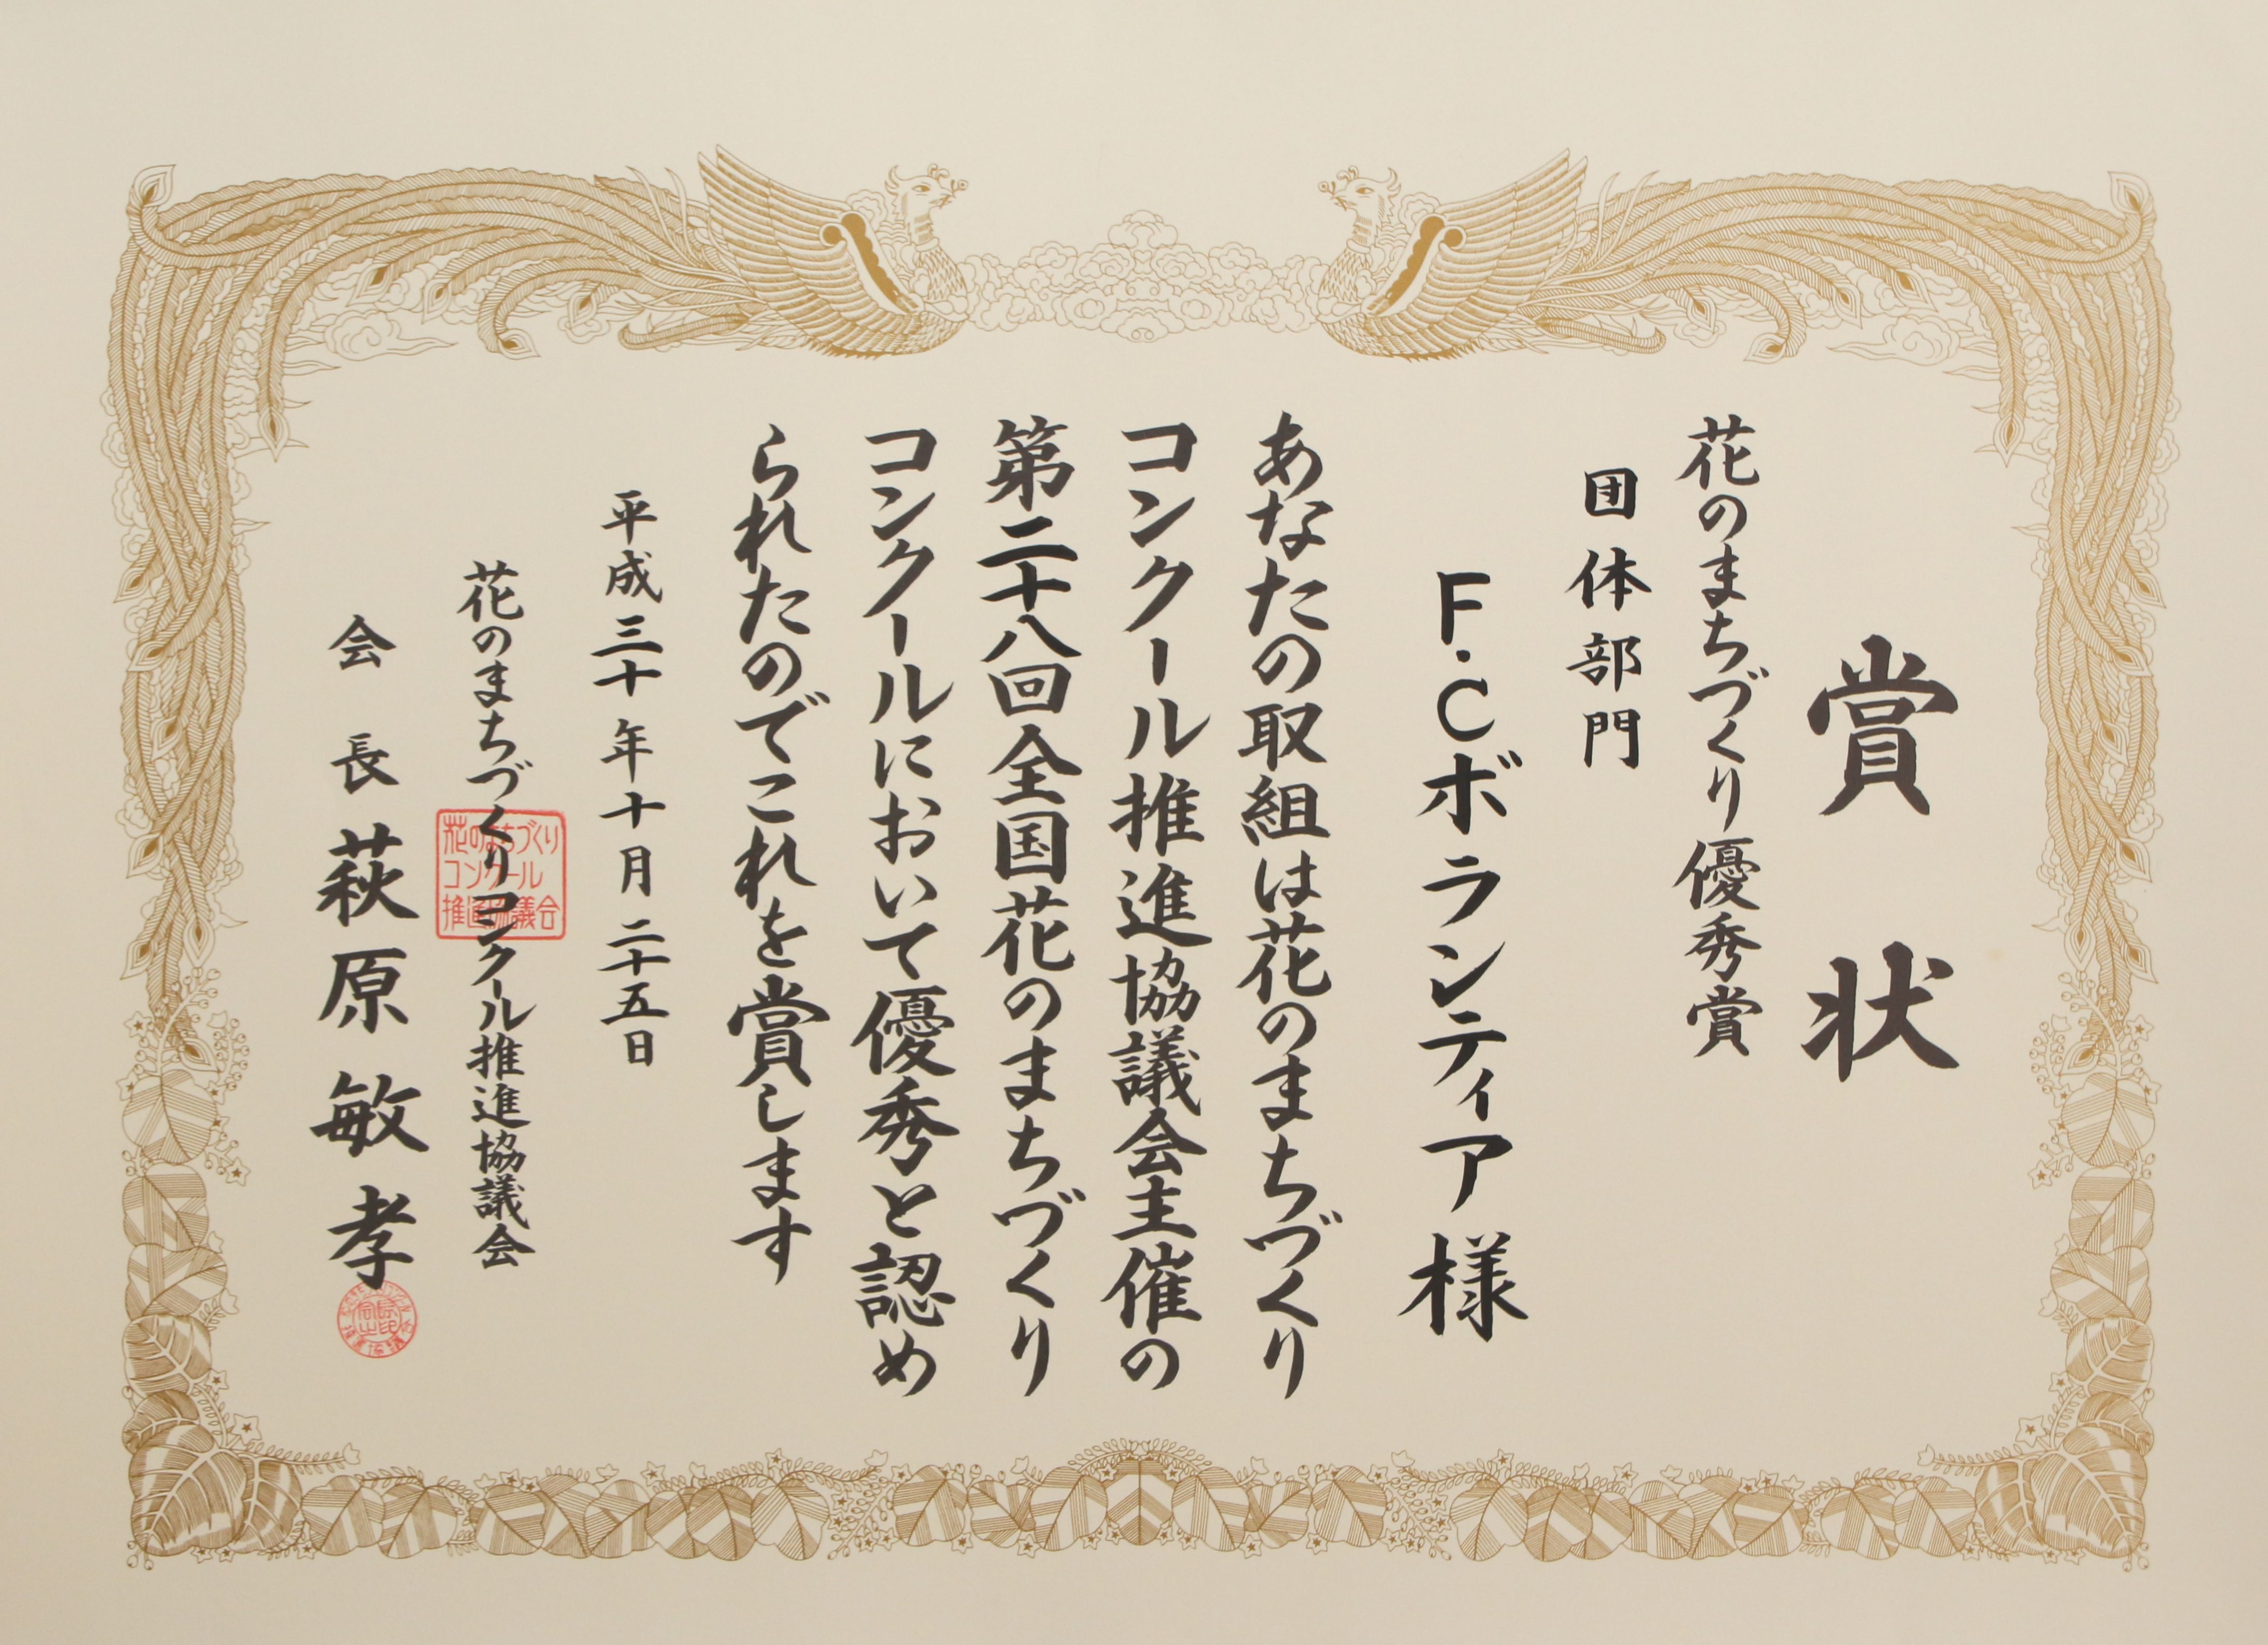 賞状
花のまちづくり優秀賞
団体部門
F.Cボランティア様
あなたの取組は花のまちづくり
コンクール推進協議会主催の
第二十八回全国花のまちづくり
コンクールにおいて優秀と認め
られたのでこれを賞します
平成三十年十月二十五日
花のまちづくりコンクール推進協議会
会長萩原敏孝
花のまちづくり
コンクール
推進協議会